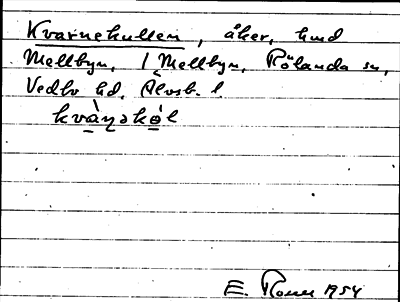 Kvarnekullen, åker, hmd
Mellbyn, 1 Mellbyn, Rölanda sn,
Vedbo hd, Älvsb. l.
kvàṇəkəl
E. 1954